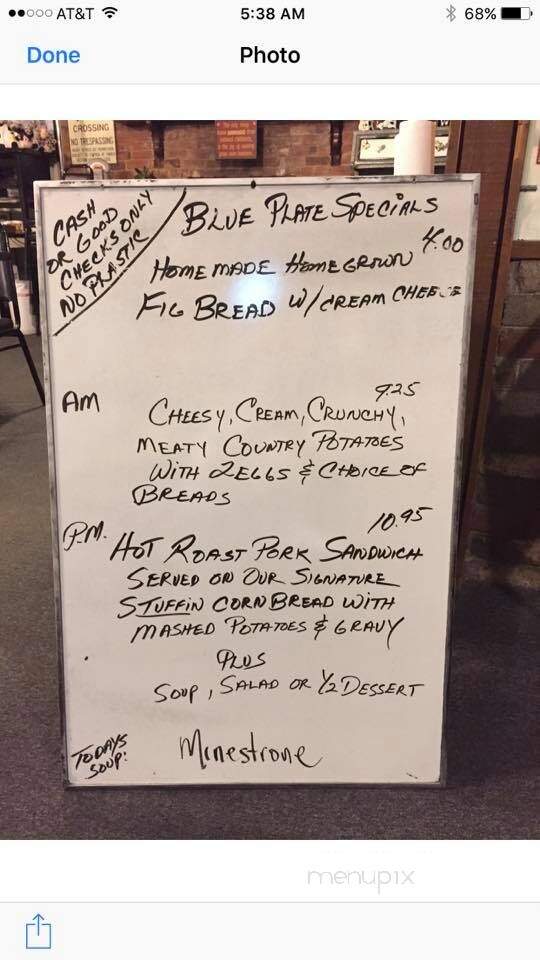 AT&T 5:38 AM 68%
Done Photo
CROSSING
NO TRESPASSING
CASH
OR GOOD
CHECKS ONLY
NO PLASTIC
BLUE PLATE SPECIALS
HOMEMADE HOMEGROWN 4.00
FIG BREAD W/ CREAM CHEESE
AM 9.25
CHEESY, CREAM, CRUNCHY,
MEATY COUNTRY POTATOES
WITH 2 EGGS & CHOICE OF
BREADS
P.M. 10.95
HOT ROAST PORK SANDWICH
SERVED ON OUR SIGNATURE
STUFFIN CORN BREAD WITH
MASHED POTATOES & GRAVY
PLUS
SOUP, SALAD OR 1/2 DESSERT
TODAYS
SOUP: Minestrone
menupix